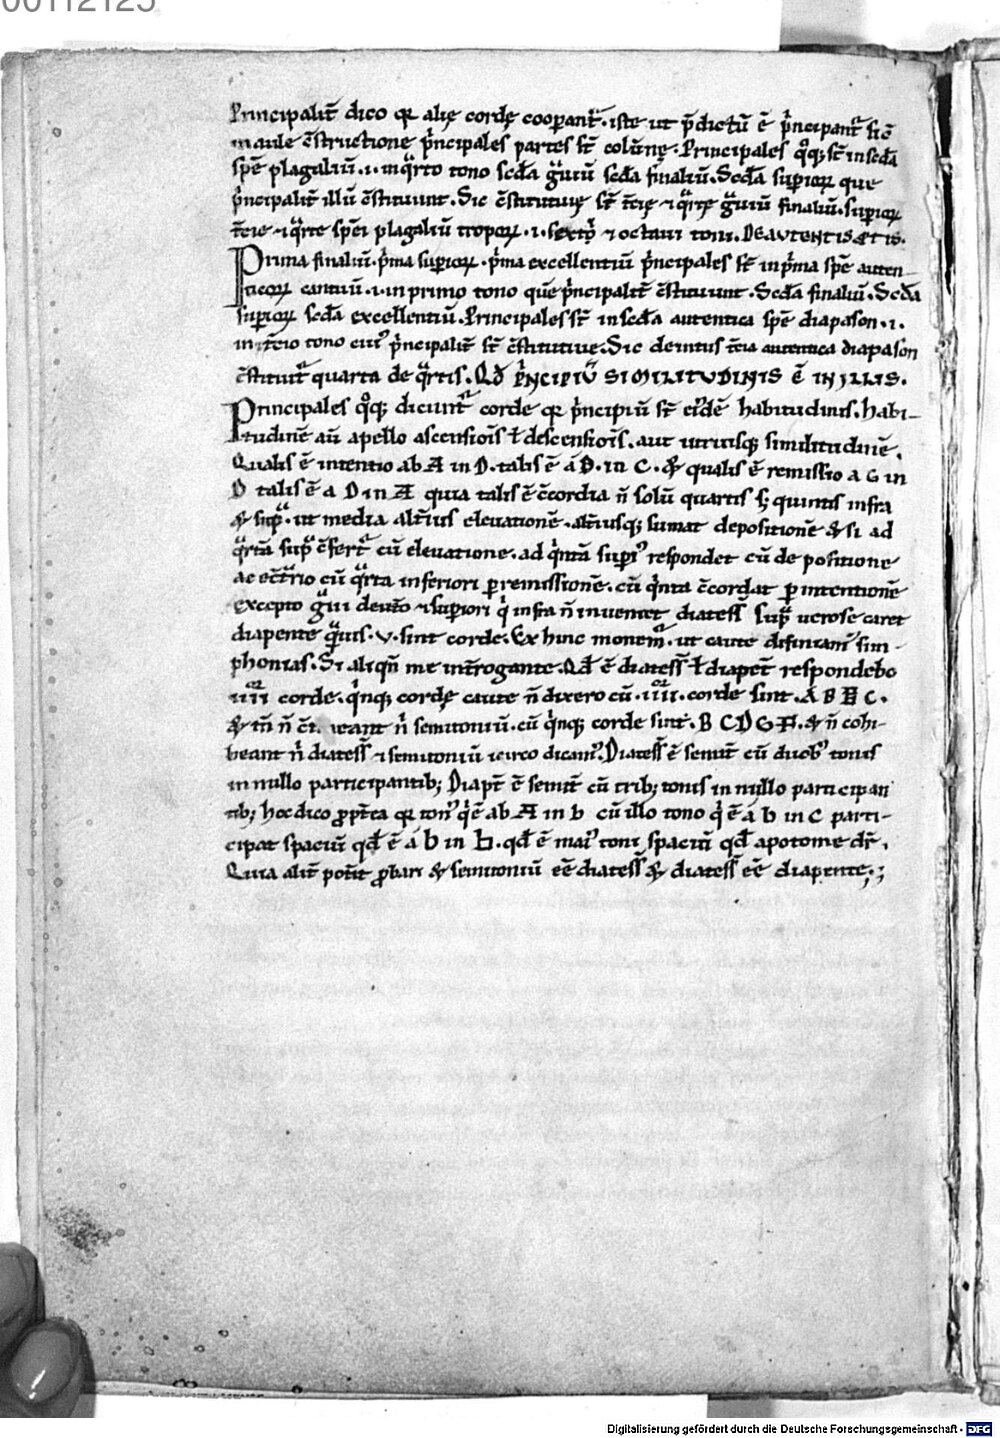 00112125
Principalit̄ dico qꝛ alię cordę cooꝑant᷑. iste ut p̄dictū ē p̄ncipant᷑ sic̄
in aule ꝯstructione p̄ncipales partes st̄ colūnę. Principales qͦqꝫ st̄ in scd̄a
spē plagaliū .i. in qͣrto tono scd̄a gͣuiū scd̄a finaliū. Scd̄a suꝑioꝝ que
p̄ncipalit̄ illū ꝯstituunt. Sic ꝯstitutiuę st̄ t̄cię ⁊ qͣrtę gͣuiū finaliū. suꝑioꝝ
t̄cie ⁊ qͣrte spēi plagaliū tropoꝝ .i. sexti ⁊ octaui toni. DE AVTENTIS
Prima finaliū. p̄ma suꝑioꝝ. p̄ma excellentiū p̄ncipales st̄ in p̄ma spē auten-
ticoꝝ cantuū .i. in primo tono quē p̄ncipalit̄ ꝯstituunt. Scd̄a finaliū. Scd̄a
suꝑioꝝ scd̄a excellentiū. Principales st̄ in scd̄a autentica spē diapason .i.
in t̄cio tono eiꝰ p̄ncipalit̄ st̄ ꝯstitutiue. Sic deintus t̄cia autentica diapason
ꝯstituit᷑ quarta de qͣrtis. Qd̄ PͥNCIPIV̄ SIMILITVDINIS Ē IN ILLIS.
Principales qͦqꝫ dicunt᷑ corde qꝛ p̄ncipiū st̄ eiꝰdē habitudinis. Habi-
tudinē aū apello ascensiōis ł descensiōis. aut utriusqꝫ similitudinē.
Qualis ē intentio ab A in D. talis ē á B. in C. & qualis ē remissio a G in
D talis ē a D in A quia talis ē ꝯcordia n̄ solū quartis sꝫ quintis infra
& supͣ. ut media alt̄ius eleuationē. alt̄iusqꝫ sumat depositionē & si ad
qͣrtā supͣ ꝯfert᷑ cū eleuatione. ad qͥntā suꝑꝰ respondet cū depositione
ac ꝯt̄rio cū qͣrta inferiori ꝑ remissionē. cū qͥnta ꝯcordat ꝑ intentionē
excepto gͣui ⁊ suꝑiori qͥ infra n̄ inuenit diatess̄ supͣ uero se caret
diapente qͣuis .v. sint corde. Ex hinc monem᷑. ut caute difiniam᷑ sim-
phonias. Si aliqn̄ me int̄rogante. Qd̄ ē diatess̄ ł diapet̄ respondebo
iiii corde. qͥnqꝫ cordę caute n̄ dixero cū .iiii. corde sint. A B ♮ C.
& tn̄ n̄ nͥ semitoniū. cū qͥnqꝫ corde sint. B C D G & n̄ cohi-
beant nͥ diatess̄ ⁊ semitoniū iccirco dicamꝰ. Diatess̄ ē semit̄ cū duobꝰ tonis
in nullo participantibꝫ Diapt̄ ē semit̄ cū tribꝫ tonis in nullo participan
tibꝫ hoc dico ꝓpt̄ea qꝛ tonꝰ qͥ ē ab A in b cū illo tono qͥ ē á b in c parti-
cipat spaciū qd̄ ē á b in ♮. qd̄ ē maiꝰ toni spaciū qd̄ apotome dr̄.
Quia alit̄ pot̄it ꝓbari & semitoniū eē diatess̄ & diatess̄ eē diapente.;
Digitalisierung gefördert durch die Deutsche Forschungsgemeinschaft - DFG